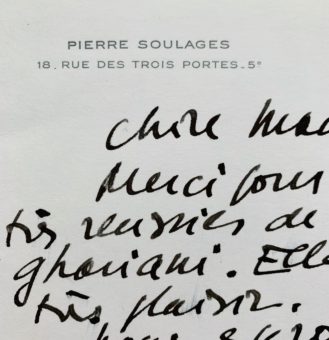 PIERRE SOULAGES
18. RUE DES TROIS PORTES_5e
Chère Mad
Merci pour
très réussies de
ghoriani. Elle
très plaisir.